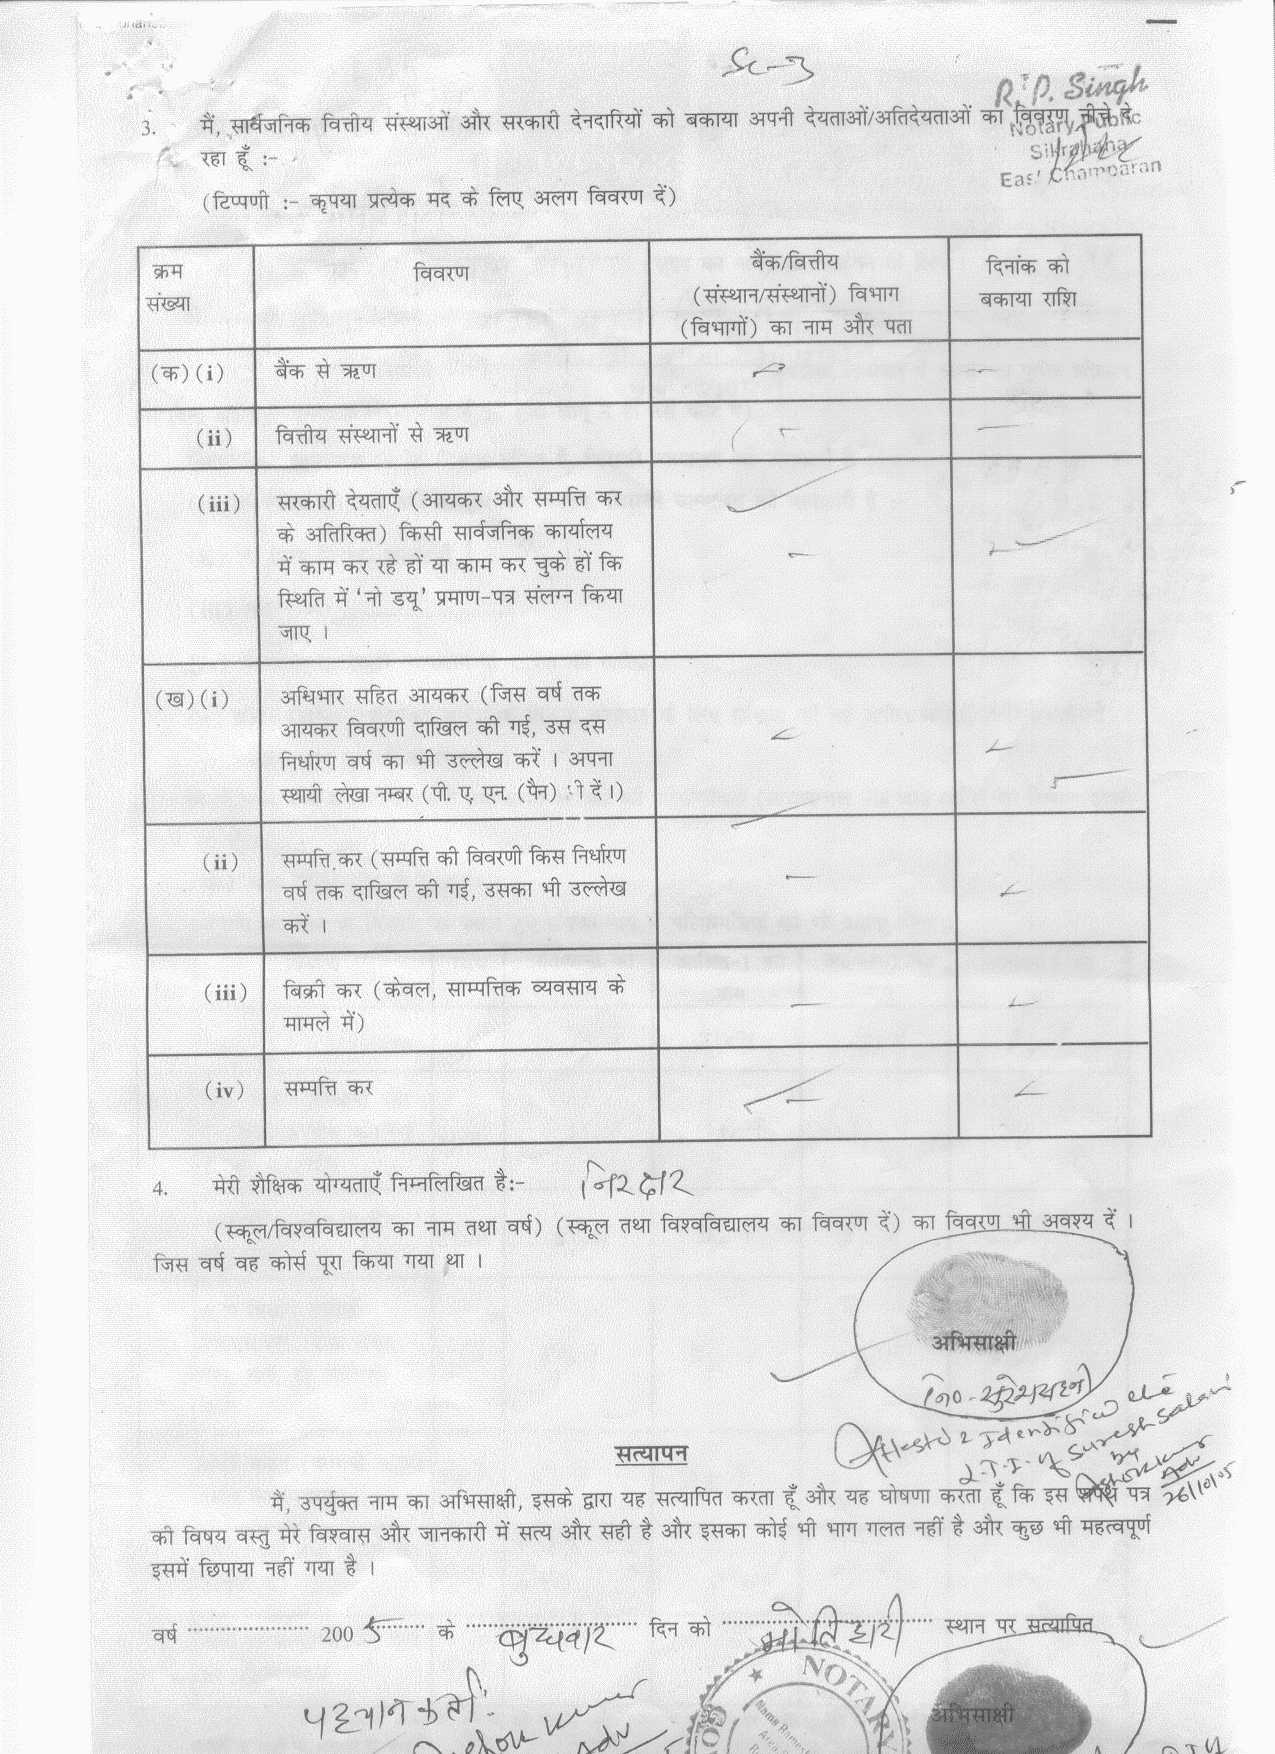 R. P. Singh
Notary Public
Sikrahana
East Champaran
3. मैं, सार्वजनिक वित्तीय संस्थाओं और सरकारी देनदारियों को बकाया अपनी देयताओं/अतिदेयताओं का विवरण नीचे दे
रहा हूँ :-
(टिप्पणी :- कृपया प्रत्येक मद के लिए अलग विवरण दें)
क्रम संख्या
विवरण
बैंक/वित्तीय
(संस्थान/संस्थानों) विभाग
(विभागों) का नाम और पता
दिनांक को
बकाया राशि
(क)(i) बैंक से ऋण
(ii) वित्तीय संस्थानों से ऋण
(iii) सरकारी देयताएँ (आयकर और सम्पत्ति कर
के अतिरिक्त) किसी सार्वजनिक कार्यालय
में काम कर रहे हों या काम कर चुके हों कि
स्थिति में ‘नो डयू’ प्रमाण-पत्र संलग्न किया
जाए ।
(ख)(i) अधिभार सहित आयकर (जिस वर्ष तक
आयकर विवरणी दाखिल की गई, उस दस
निर्धारण वर्ष का भी उल्लेख करें । अपना
स्थायी लेखा नम्बर (पी. ए. एन. (पैन) भी दें।)
(ii) सम्पत्ति कर (सम्पत्ति की विवरणी किस निर्धारण
वर्ष तक दाखिल की गई, उसका भी उल्लेख
करें ।
(iii) बिक्री कर (केवल, साम्पत्तिक व्यवसाय के
मामले में)
(iv) सम्पत्ति कर
4. मेरी शैक्षिक योग्यताएँ निम्नलिखित है:- निरक्षर
(स्कूल/विश्वविद्यालय का नाम तथा वर्ष) (स्कूल तथा विश्वविद्यालय का विवरण दें) का विवरण भी अवश्य दें ।
जिस वर्ष वह कोर्स पूरा किया गया था ।
अभिसाक्षी
नि० - सुरेश सहनी
Attested & Identified the
L.T.I. of Suresh Sahani
by
Ashok Kumar
Adv
26/10/05
सत्यापन
मैं, उपर्युक्त नाम का अभिसाक्षी, इसके द्वारा यह सत्यापित करता हूँ और यह घोषणा करता हूँ कि इस शपथ पत्र
की विषय वस्तु मेरे विश्वास और जानकारी में सत्य और सही है और इसका कोई भी भाग गलत नहीं है और कुछ भी महत्वपूर्ण
इसमें छिपाया नहीं गया है ।
वर्ष 2005 के बुधवार दिन को मोतिहारी स्थान पर सत्यापित
NOTARY
पहचानकर्ता:
Ashok Kumar
Adv
अभिसाक्षी